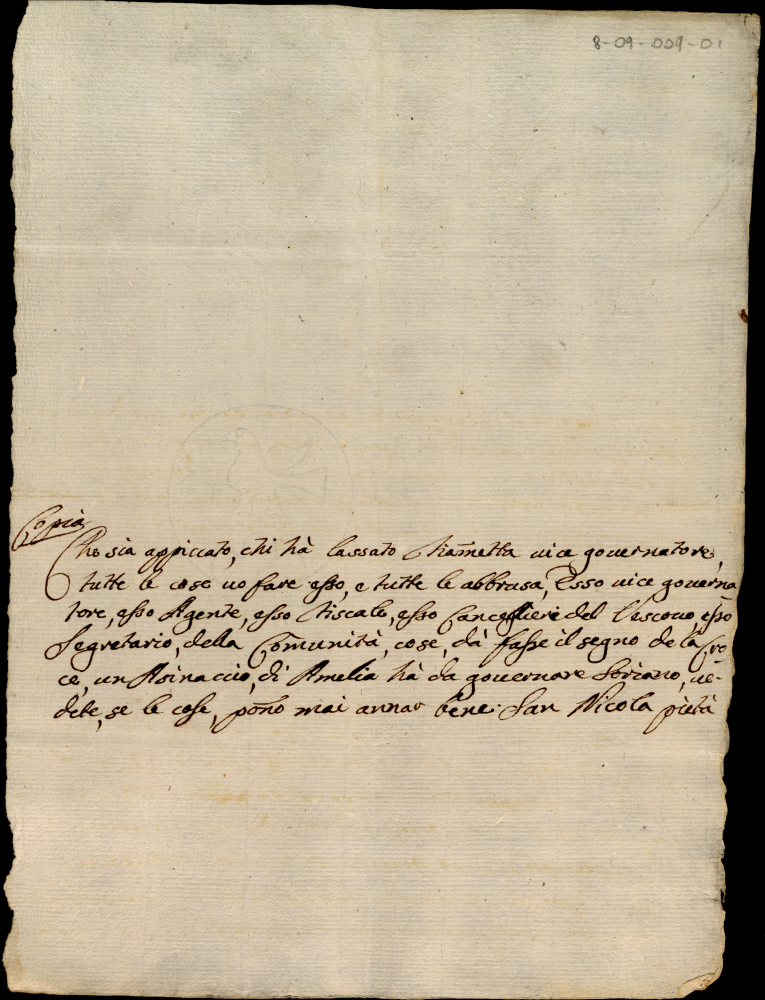 8-09-009-01
Copia
Che sia appiccato, chi hà lassato Fiam̃etta vice governatore,
tutte le cose vo fare esso, e tutte le abbrusa, Esso vice governa
tore, esso Agente, esso Fiscale, esso Cancelliere del Vescovo, esso
Segretario, della Com̃unità, cose, dà fasse il segno de la Cro
ce, un Asinaccio, di Amelia hà da governare Soriano, ve-
dete, se le cose, pon̄o mai annar bene: San Nicola pietà